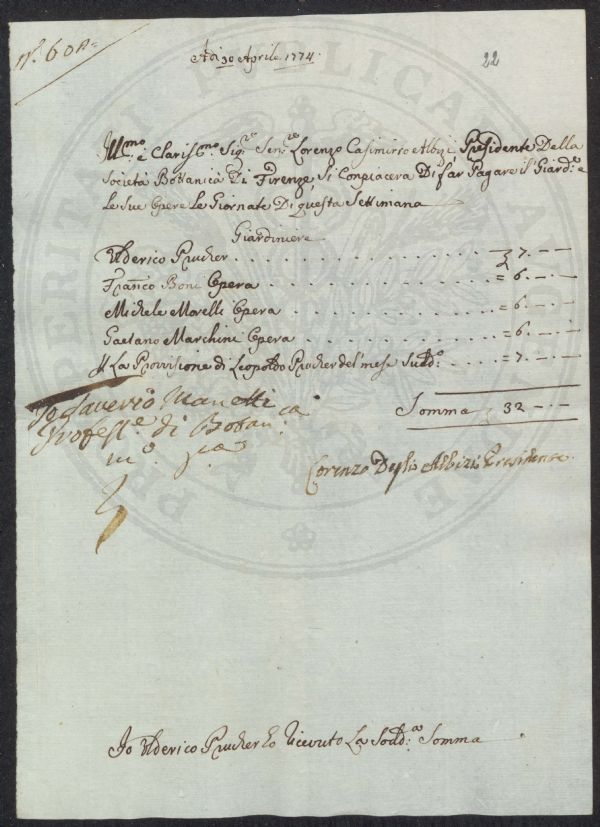 N.º 60
Adi 30 Aprile 1774.
22
Ill.mo e Claris.mo Sig.re Sen.re Lorenzo Casimirro Albizi Presidente Della
Società Bottanica Di Firenze, Si Conpiacera Di far Pagare il Giard.e e
Le Sue Opere Le Giornate Di questa Settimana
Giardiniere
Ulderico Prucher . . . . . . . . . . . £ 7. — . —
Fran.co Boni Opera . . . . . . . . . . = 6. — . —
Michele Morelli Opera . . . . . . . . . . = 6. — . —
Gaetano Marchini Opera . . . . . . . . . . = 6. — . —
La Provisione di Leopoldo Prucher del mese Sudd.o . . . = 7. — . —
Somma £ 32 — . —
Io Saverio Manetti
Profess.e di Botan.ca
m.o p.a
Lorenzo Degli Albizi Presidente
Io Ulderico Prucher ho Ricevuto La Sudd.a Somma
PERITATI PUBLICAE